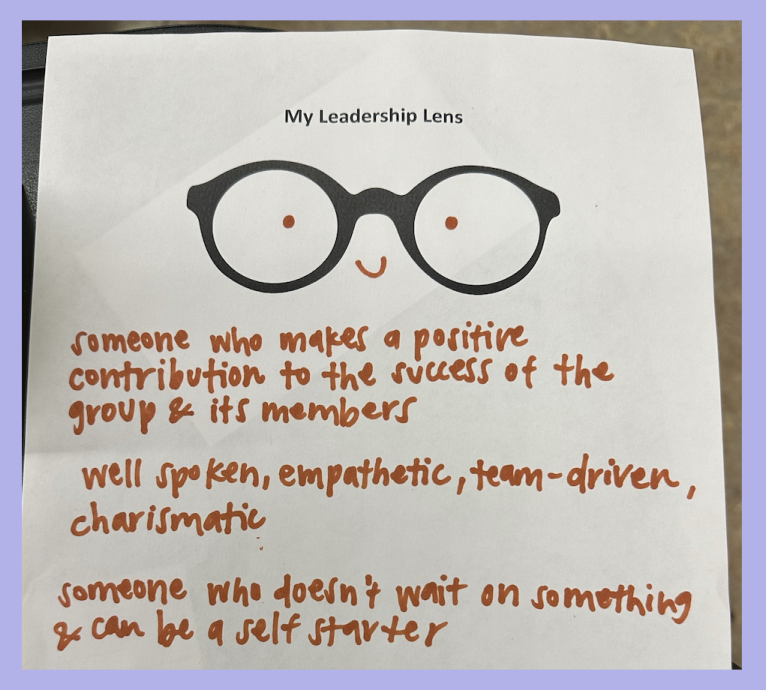 My Leadership Lens
someone who makes a positive
contribution to the success of the
group & its members
well spoken, empathetic, team-driven,
charismatic
someone who doesn't wait on something
& can be a self starter